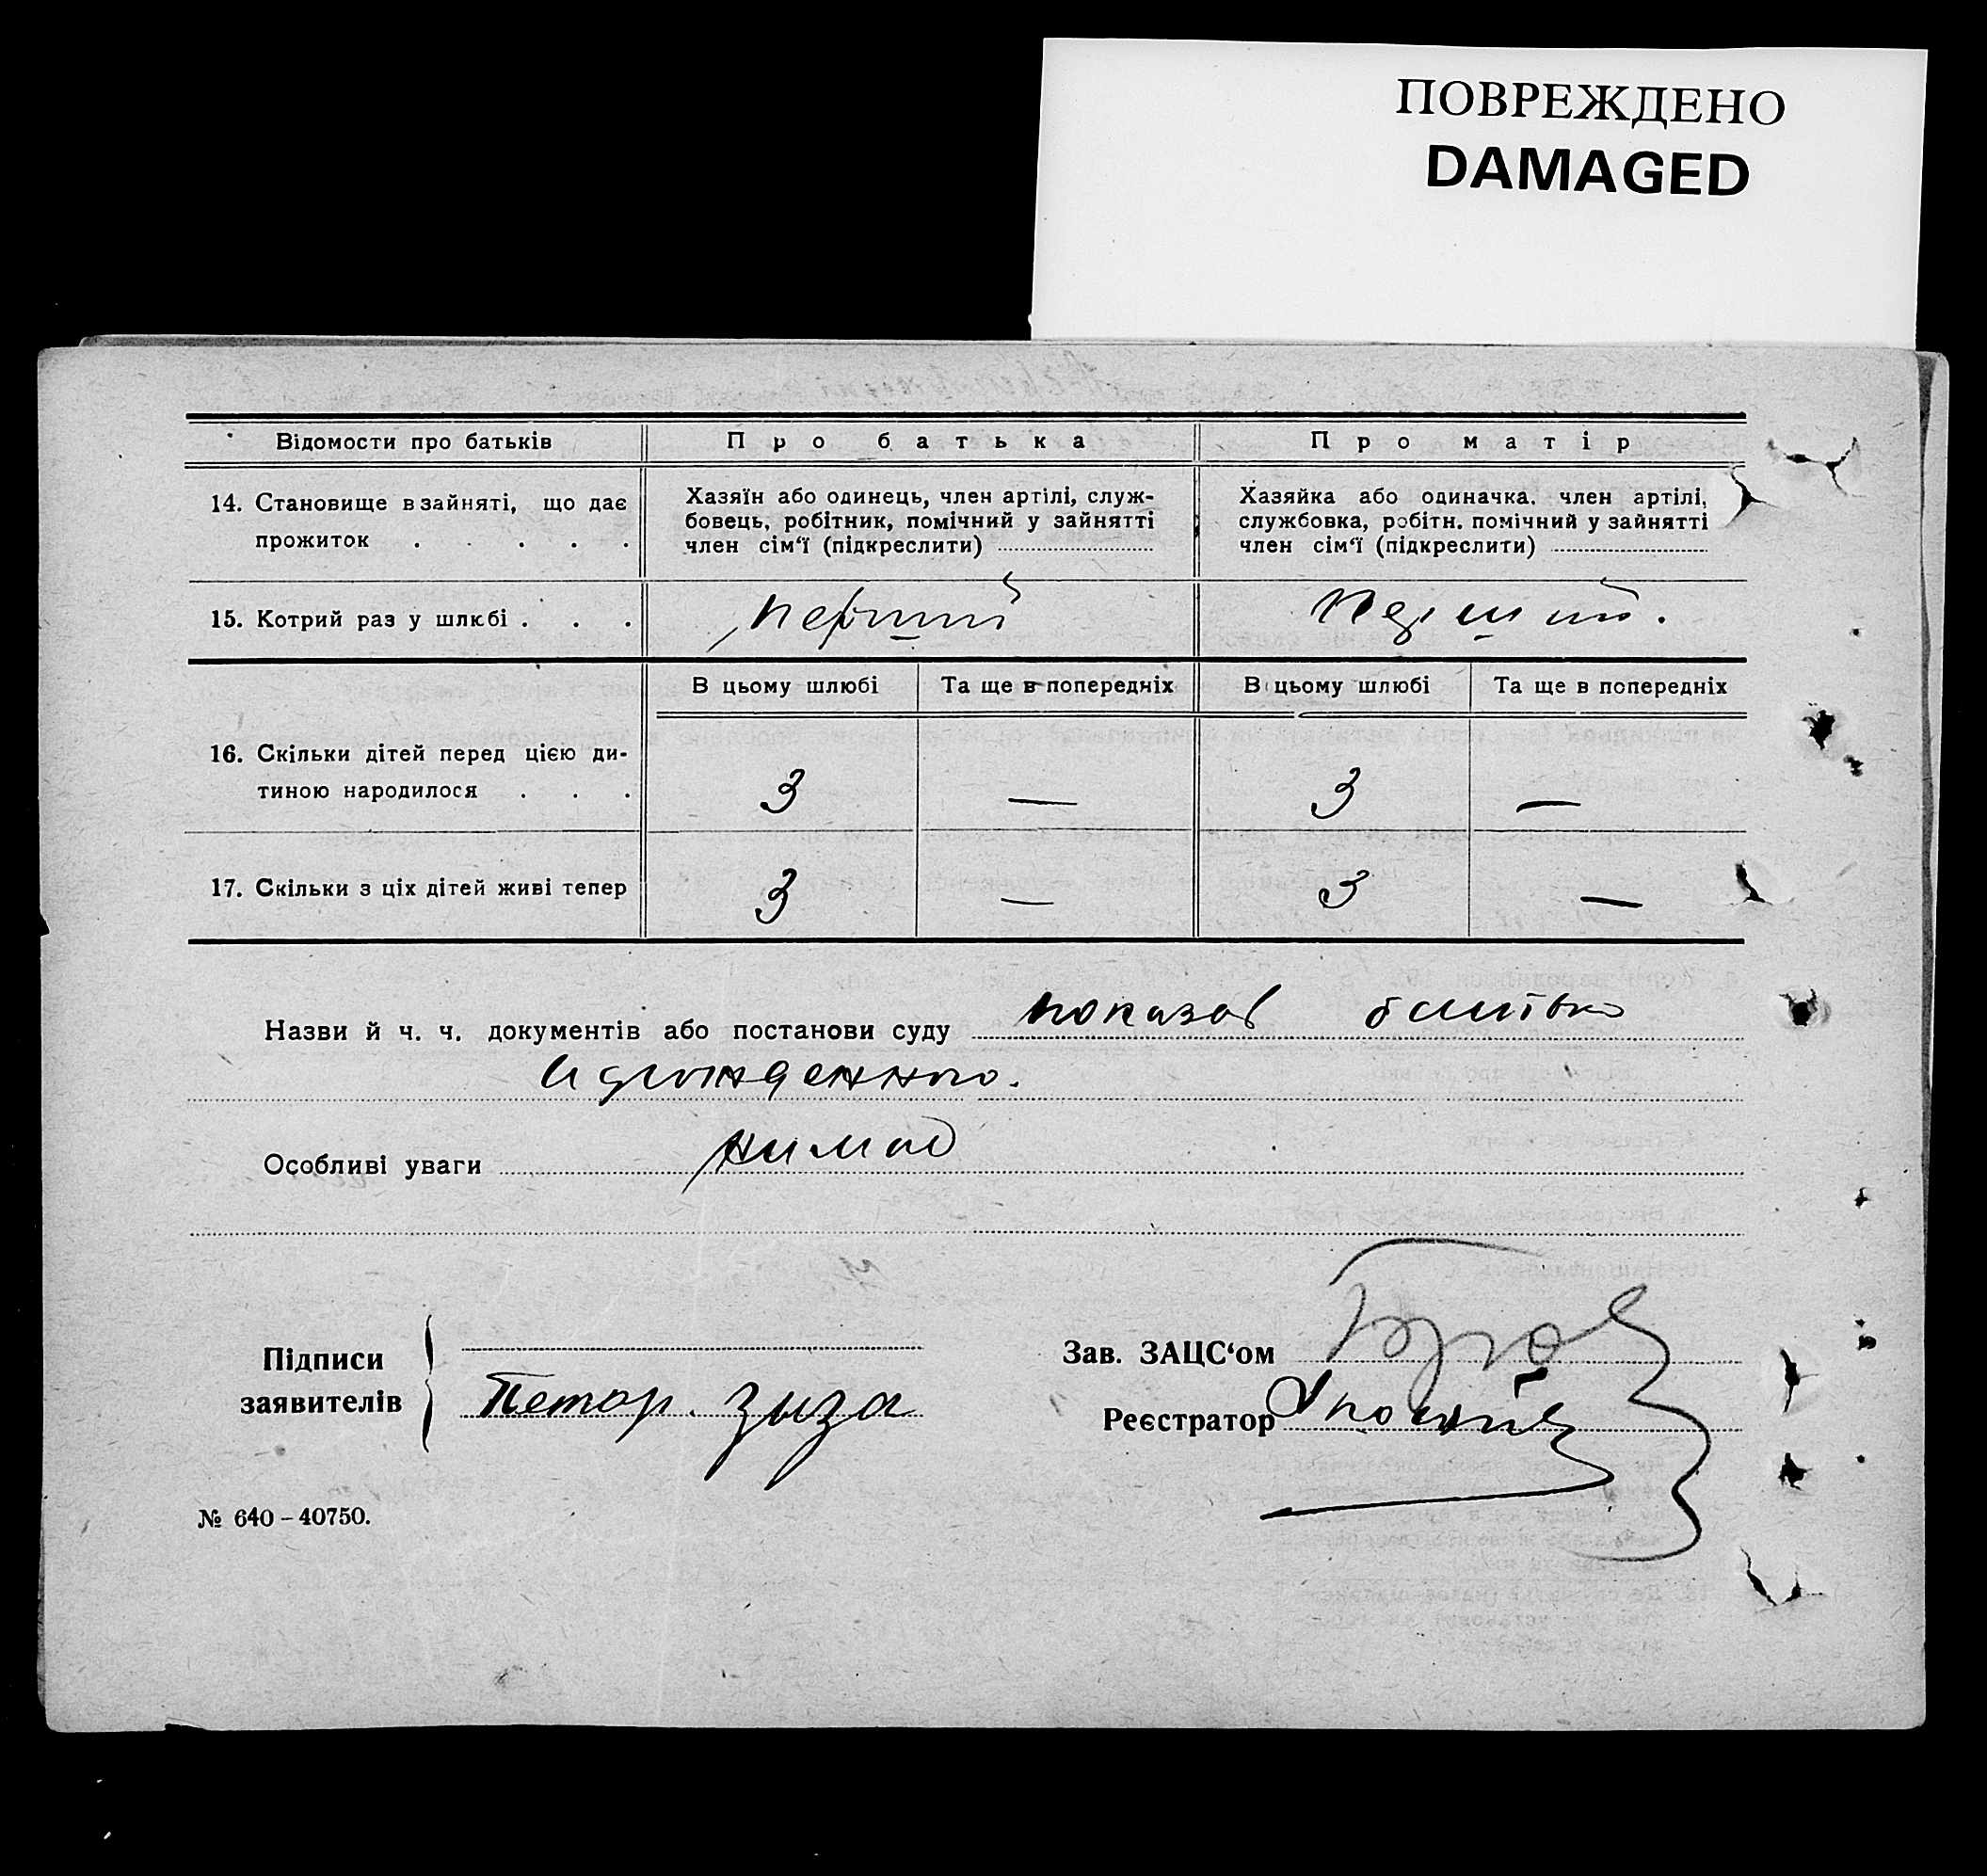 ПОВРЕЖДЕНО
DAMAGED
Відомости про батьків
Про батька
Про матір
14. Становище в зайняті, що дає
прожиток . . . . .
Хазяїн або одинець, член артілі, служ-
бовець, робітник, помічний у зайнятті
член сім‘ї (підкреслити)
Хазяйка або одиначка, член артілі,
службовка, робітн. помічний у зайнятті
член сім‘ї (підкреслити)
15. Котрий раз у шлюбі . . .
перший
перший.
В цьому шлюбі
Та ще в попередніх
В цьому шлюбі
Та ще в попередніх
16. Скільки дітей перед цією ди-
тиною народилося . . .
3
—
3
—
17. Скільки з ціх дітей живі тепер
3
—
3
—
Назви й ч. ч. документів або постанови суду показав батько
Особливі уваги нимає
Підписи
заявителів
Петор. зиза
Зав. ЗАЦС‘ом
Реєстратор
№ 640 – 40750.